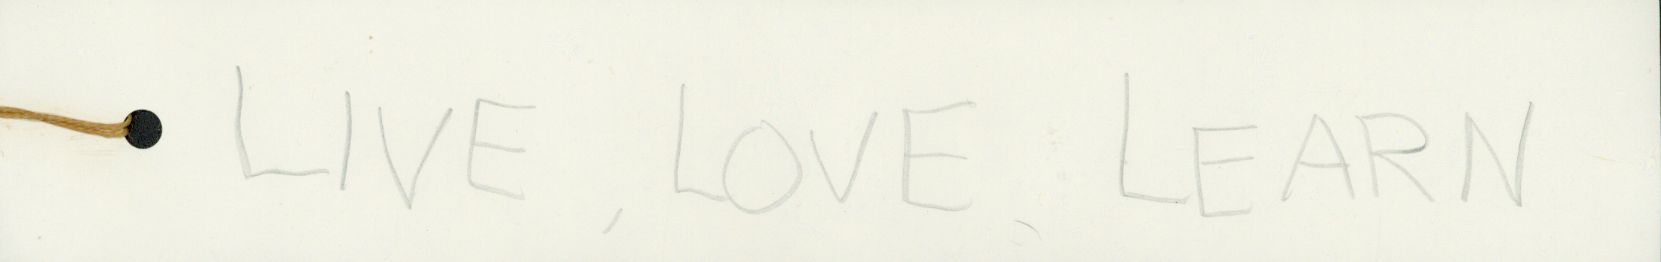 LIVE, LOVE, LEARN